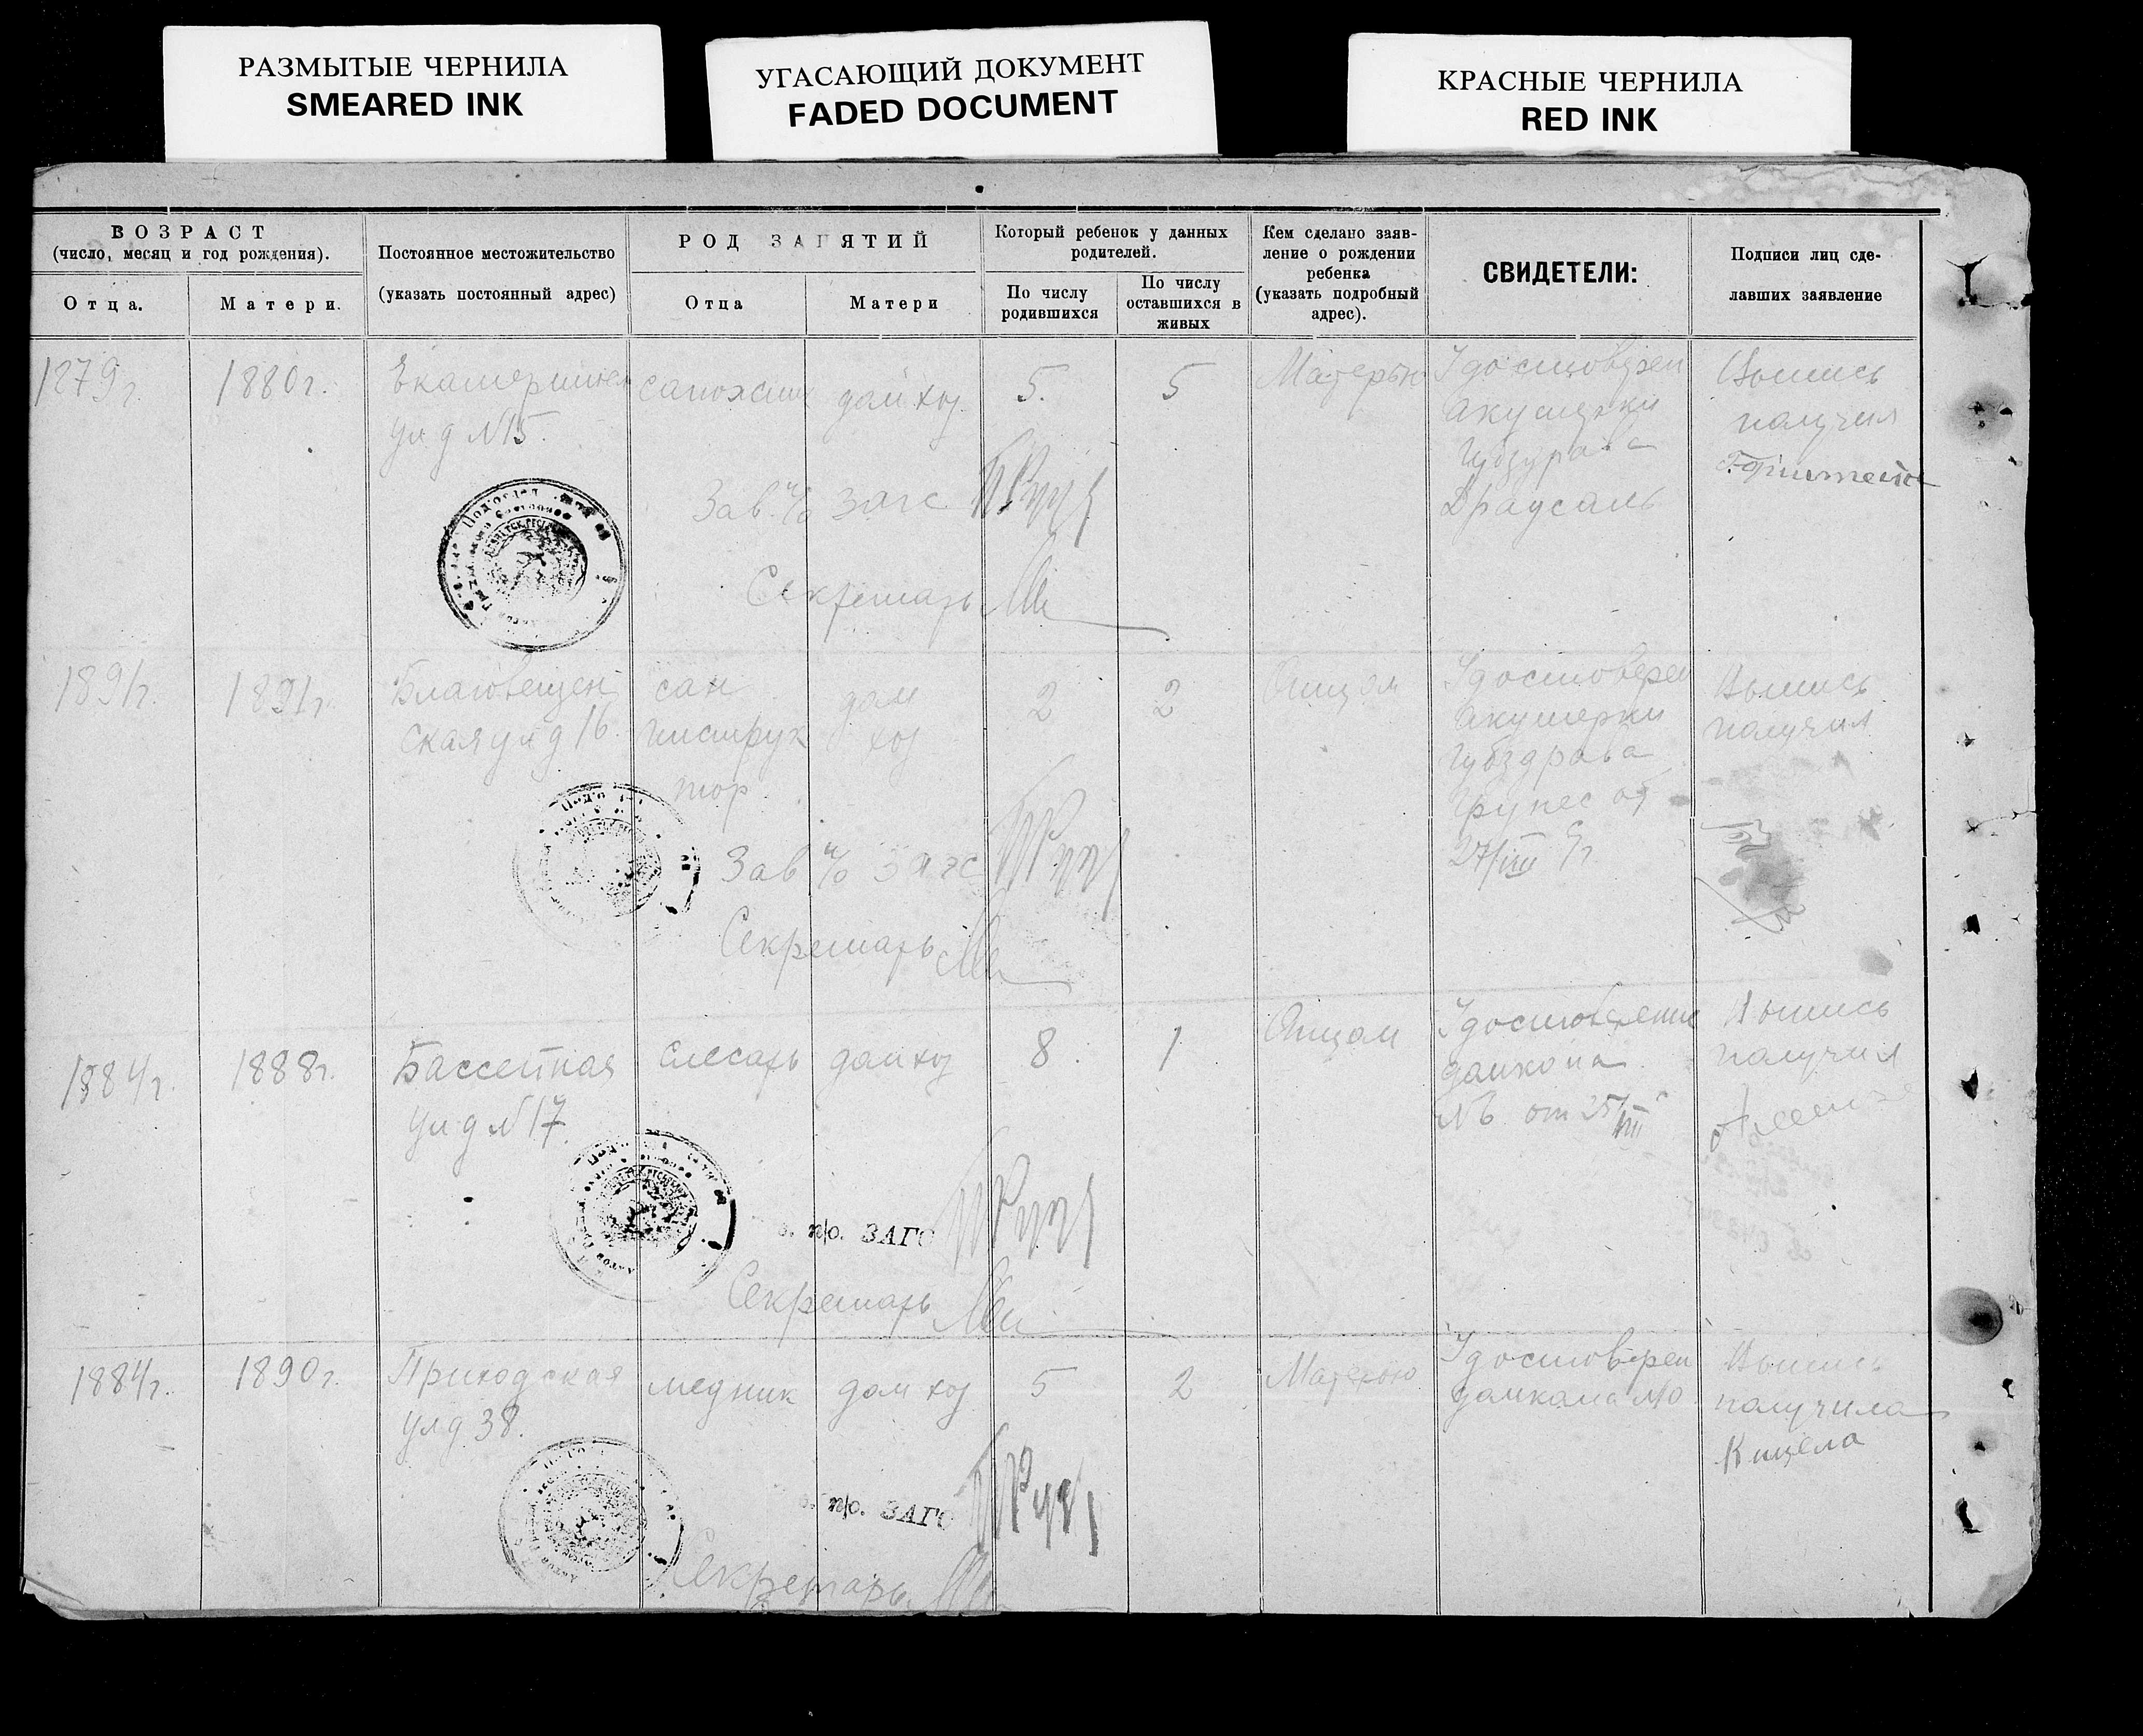 РАЗМЫТЫЕ ЧЕРНИЛА
SMEARED INK
УГАСАЮЩИЙ ДОКУМЕНТ
FADED DOCUMENT
КРАСНЫЕ ЧЕРНИЛА
RED INK
ВОЗРАСТ
(число, месяц и год рождения).
Отца.
Матери.
Постоянное местожительство
(указать постоянный адрес)
РОД ЗАНЯТИЙ
Отца
Матери
Который ребенок у данных
родителей.
По числу
родившихся
По числу
оставшихся в
живых
Кем сделано заяв-
ление о рождении
ребенка
(указать подробный
адрес).
СВИДЕТЕЛИ:
Подписи лиц сде-
лавших заявление
1879г.
1880г.
ул д №15.
дом хоз
5.
5
Матерью
Удостоверен
акушерки
Выпись
получил
Зав. п/о загс
Секретарь
1891г.
1891г.
Благовещен
ская ул д 16.
сан
инструк
тор
дом
хоз
2
2
Отцом
Удостоверен
акушерки
Губздрава
от
27/VIII
Выпись
получил
Зав п/о загс
Секретарь
1884г.
1888г.
Бассейная
ул д №17.
слесарь
дом хоз
8
1
Отцом
Удостоверение
домкома
№ от 25/VIII
Выпись
получил
п/о. ЗАГС
Секретарь
1884г.
1890г.
Приходская
ул д 38.
медник
дом хоз
5
2
Матерью
Удостоверен
домкома
Выпись
получила
п/о. ЗАГС
Секретарь